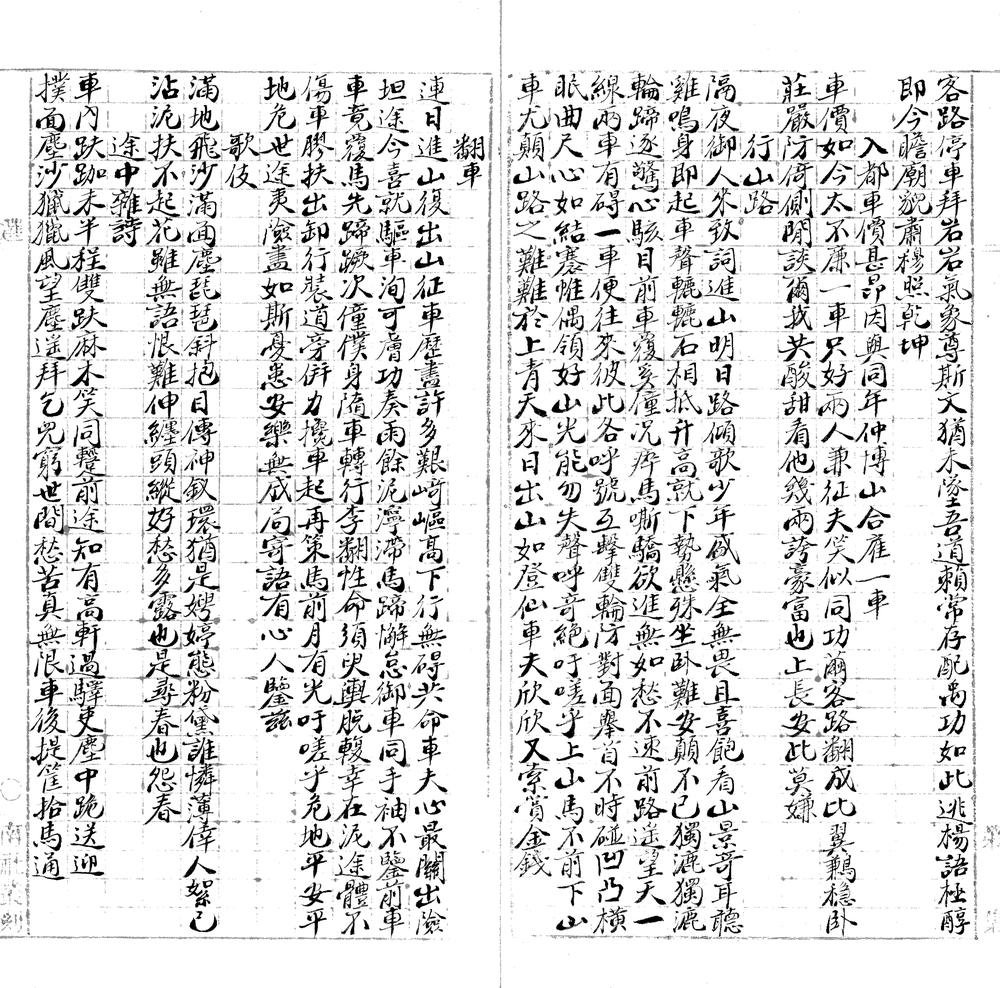 客路停車拜岩岩氣象尊斯文猶未墜吾道賴常存配禹功如此逃楊語極醇
即今瞻廟貌肅穆照乾坤
入都車價甚昂因與同年仲博山合雇一車
車價如今太不廉一車只好兩人兼征夫笑似同功繭客路翻成比翼鶼穩臥
莊嚴防倚側閒談爾我共酸甜看他幾兩誇豪富也上長安此莫嫌
行山路
隔夜御人來致詞進山明日路傾欹少年盛氣全無畏且喜飽看山景奇耳聽
雞鳴身即起車聲轆轆石相抵升高就下勢懸殊坐臥難安顛不已獨漉獨漉
輪蹄逐驚心駭目前車覆炎僮況瘁馬嘶驕欲進無如愁不速前路遙望天一
線兩車有碍一車便往來彼此各呼號互擊雙輪防對面舉首不時碰凹凸橫
眠曲尺心如結塞帷偶領好山光能勿失聲呼奇絕吁嗟乎上山馬不前下山
車尤顛山路之難難於上青天來日出山如登仙車夫欣欣又索賞金錢
翻車
連日進山復出山征車歷盡許多艱崎嶇高下行無碍共命車夫心最關出險
坦途今喜就驅車洵可膚功奏雨餘泥濘滯馬蹄懈怠御車同手袖不鑒前車
車竟覆馬先蹄蹶次僮僕身隨車轉行李翻性命須臾輿脫輹幸在泥途體不
傷車膠扶出卸行裝道旁併力攙車起再策馬前月有光吁嗟乎危地平安平
地危世途夷險盡如斯憂患安樂無成局寄語有心人鑒茲
歌伎
滿地飛沙滿面塵琵琶斜抱目傳神釵環猶是娉婷態粉黛誰憐薄倖人絮已
沾泥扶不起花雖無語恨難伸纏頭縱好愁多露也是尋春也怨春
途中雜詩
車內趺跏未半程雙趺麻木笑同蹩前途知有高軒過驛吏塵中跪送迎
撲面塵沙獵獵風望塵遙拜乞兒窮世間愁苦真無限車後提筐拾馬通